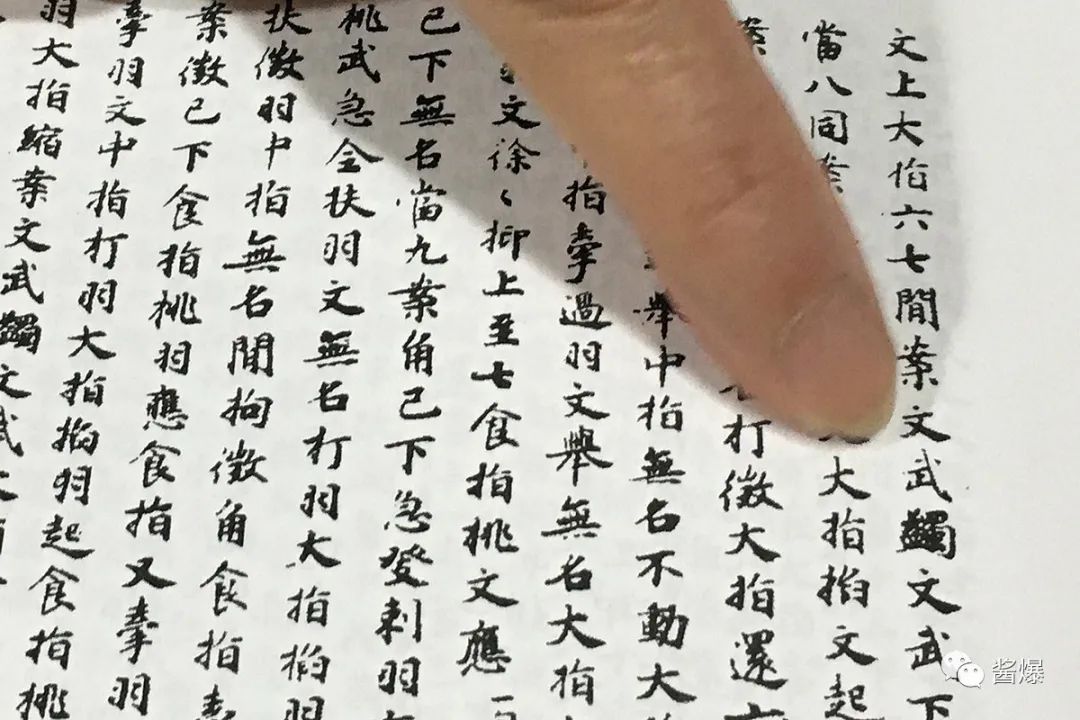 文上大指六七閒案文武蠲文武下
當八同案大指掐文起
案打徵大指還
舉中指無名不動大
指牽過羽文舉無名大指
文徐〻抑上至七食指挑文應
已下無名當九案角已下急登刺羽
挑武急全扶羽文無名打羽大指掐羽
扶徵羽中指無名閒拘徵角食指
案徵已下食指挑羽應食指又牽羽
牽羽文中指打羽大指掐羽起食指挑
羽大指縮案文武蠲文武
酱爆